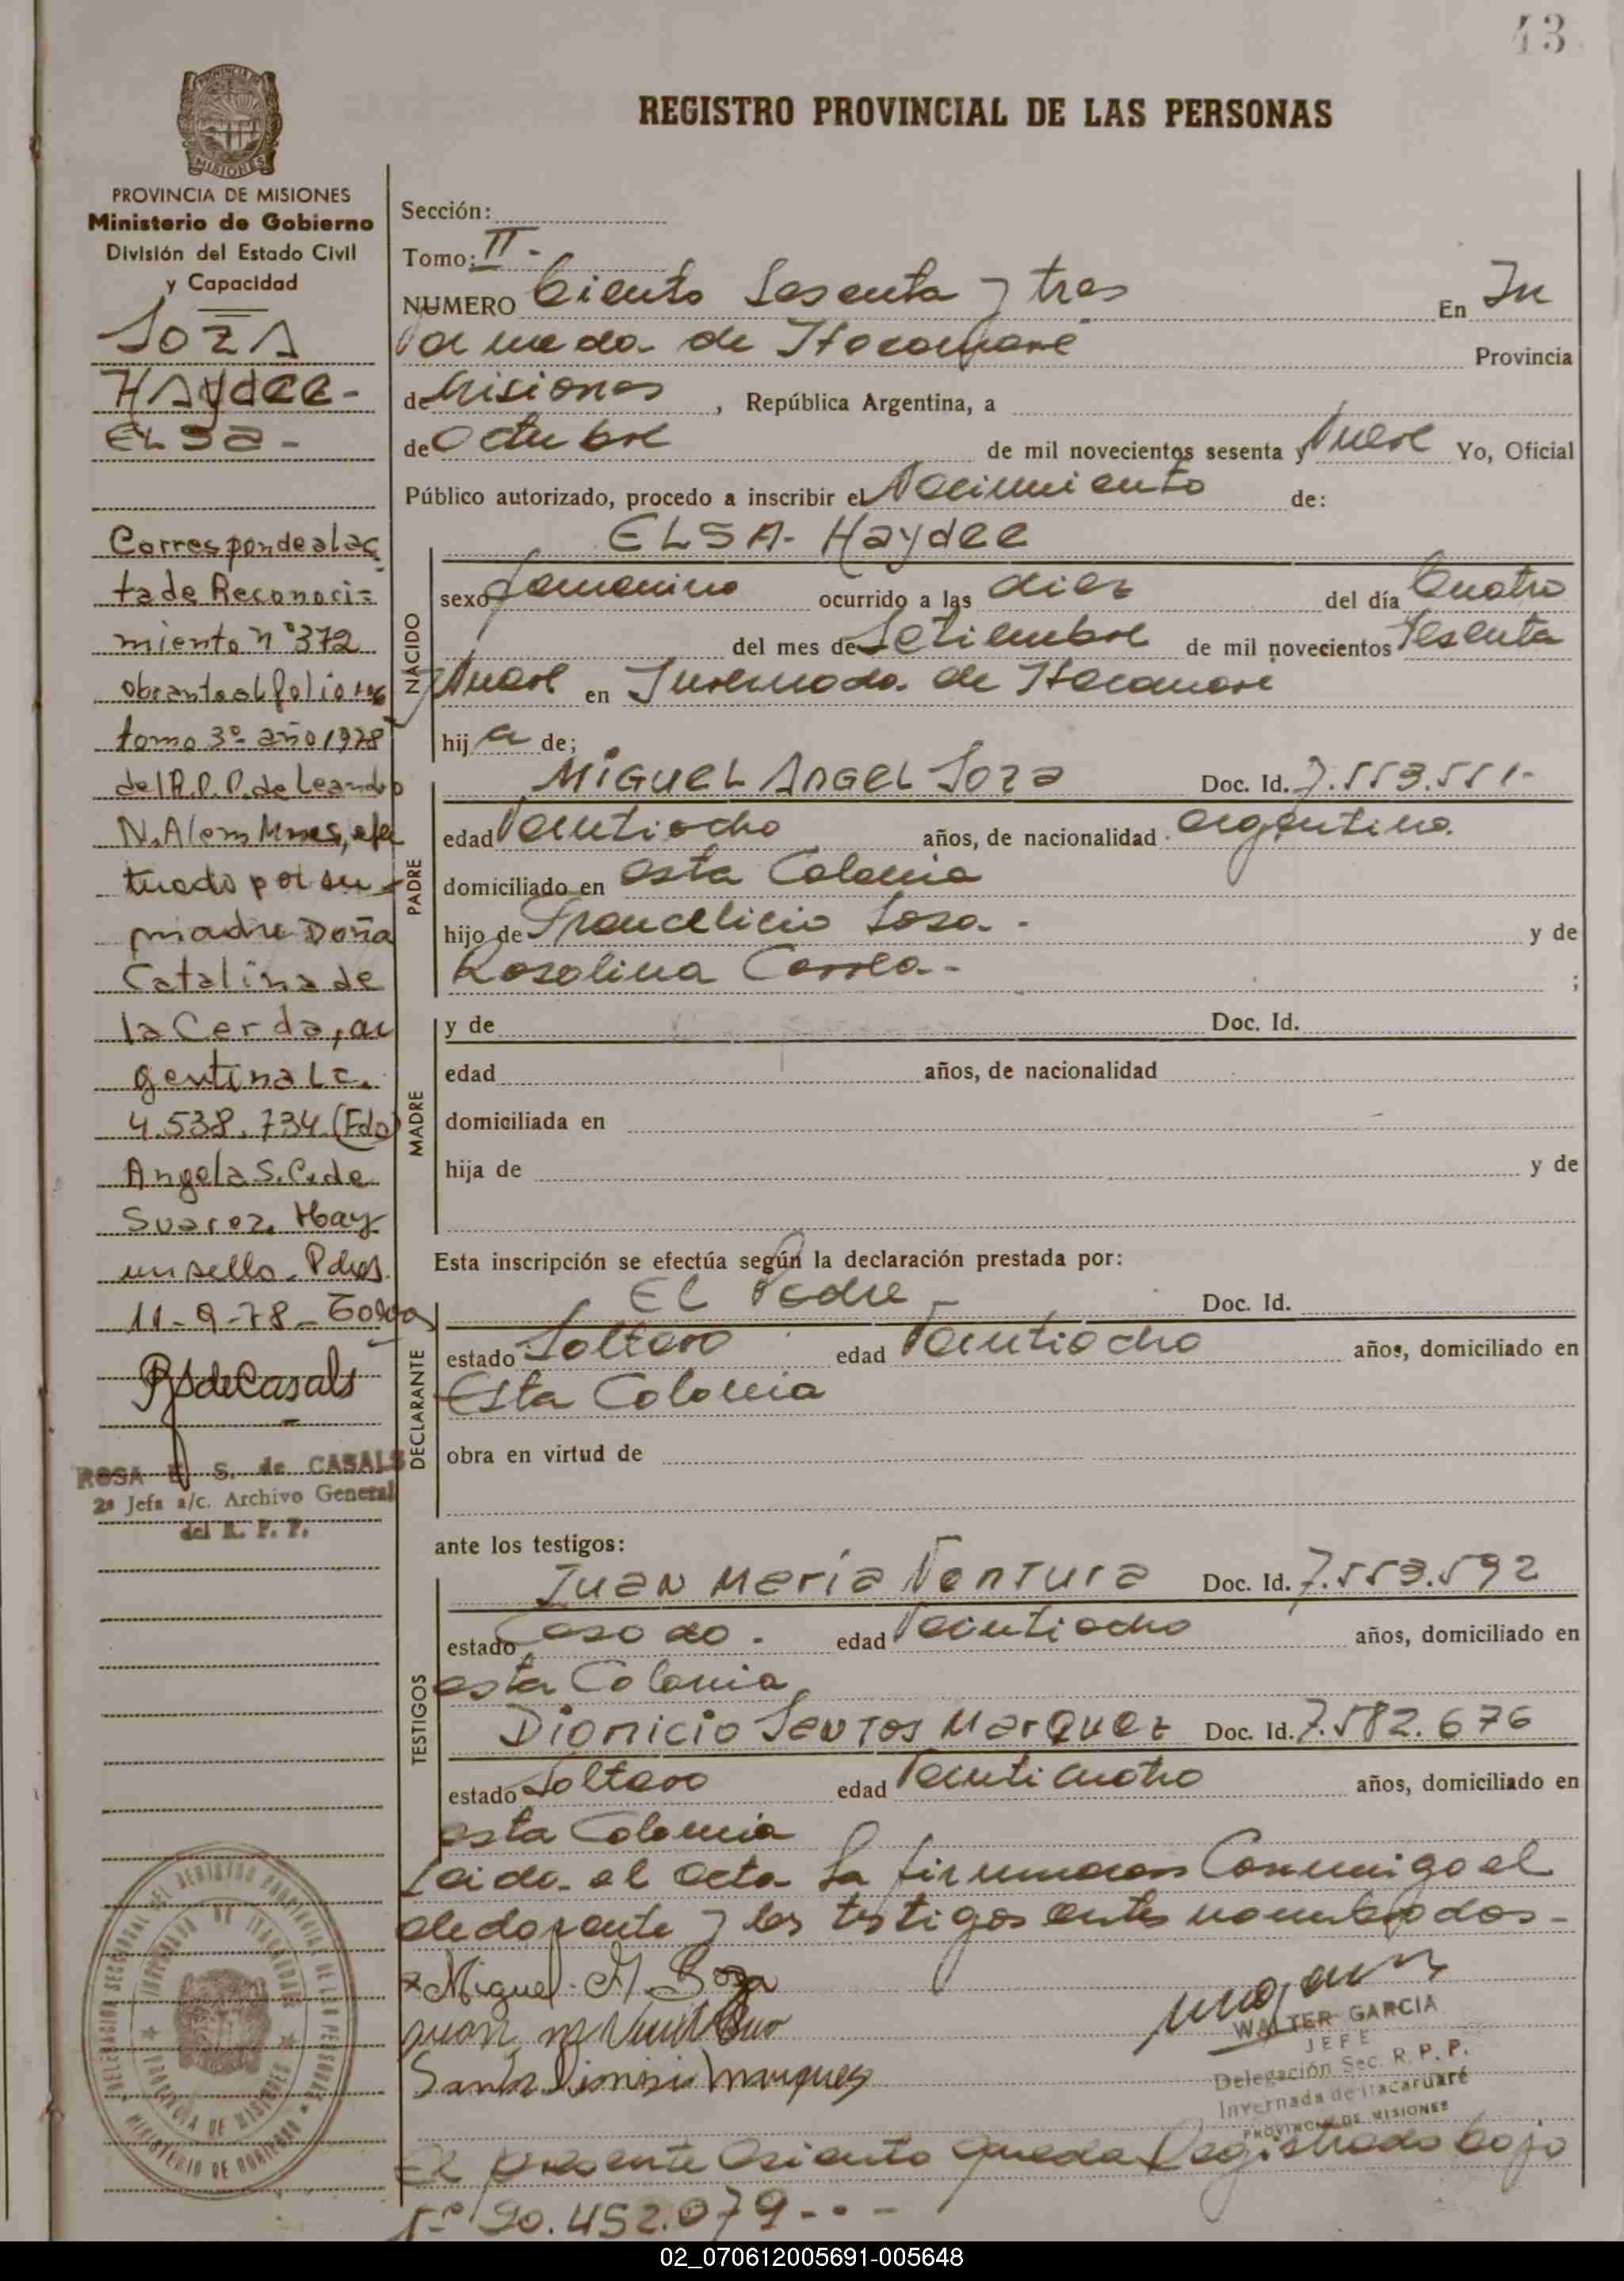 43
REGISTRO PROVINCIAL DE LAS PERSONAS
PROVINCIA DE MISIONES
Ministerio de Gobierno
División del Estado Civil
y Capacidad
SOZA
HAYdEE-
ELSA-
Correspondealac
ta de Reconoci=
miento n°372
obrante al folio
tomo 3º año 1978
del R.P.P. de Leandro
N. Alem Mnes, efec
tuado por su
madre Doña
Catalina de
la Cerda, ar
gentina L.C.
4.538.734 (Fdo)
Angela S. C. de
Suarez. Hay
un sello. Pdas.
11-9-78-
RSdeCasals
ROSA E. S. de CASALS
2ª Jefa a/c. Archivo General
del R. P. P.
Sección:
Tomo: II-
NUMERO Ciento Sesenta y tres En In
vernada de Itacaruaré Provincia
de Misiones, República Argentina, a
de Octubre de mil novecientos sesenta y Nueve Yo, Oficial
Público autorizado, procedo a inscribir el Nacimiento de:
NACIDO
ELSA- Haydee
sexo femenino ocurrido a las diez del día Cuatro
del mes de Setiembre de mil novecientos Sesenta
y Nueve en Invernada de Itacaruare
hija de;
PADRE
MIGUEL ANGEL SOZA Doc. Id. 7.553.551-
edad Veintiocho años, de nacionalidad argentina
domiciliado en esta Colonia
hijo de Francelicio Sosa- y de
Rosalina Correa- ;
MADRE
y de Doc. Id.
edad años, de nacionalidad
domiciliada en
hija de y de
Esta inscripción se efectúa según la declaración prestada por:
DECLARANTE
EL Padre- Doc. Id.
estado Soltero edad Veintiocho años, domiciliado en
Esta Colonia
obra en virtud de
ante los testigos:
TESTIGOS
Juan Maria Ventura Doc. Id. 7.553.592
estado Casado- edad Veintiocho años, domiciliado en
esta Colonia
Dionicio Santos Marquez Doc. Id. 7.582.676
estado Soltero edad Veinticuatro años, domiciliado en
esta Colonia
Leida el acta la firmaron Conmigo el
declarante y los testigos antes nombrados-
Miguel A. Soza
Juan M Ventura
Santos Dionisio Marquez
WALTER GARCIA
JEFE
Delegación Sec. R. P. P.
Invernada de Itacaruaré
PROVINCIA DE MISIONES
El presente asiento queda Registrado bajo
Nº 20.452.079---
DELEGACION SECCIONAL DEL REGISTRO PROVINCIAL DE LAS PERSONAS
INVERNADA DE ITACARUARE
PROVINCIA DE MISIONES
MINISTERIO DE GOBIERNO
02_070612005691-005648